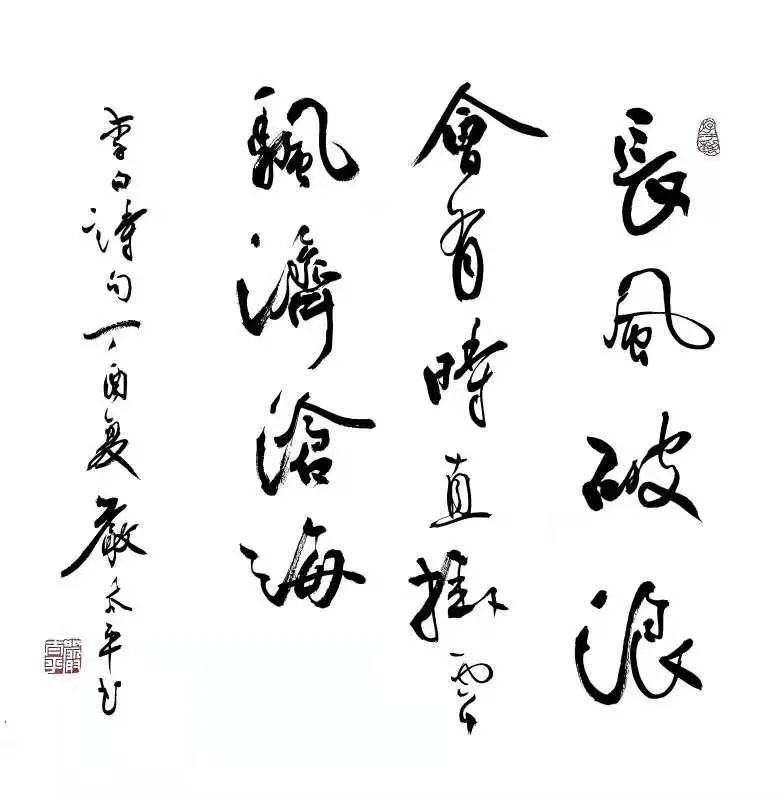 長風破浪
會有時直掛雲
颿濟滄海
李白詩句丁酉夏嚴太平書